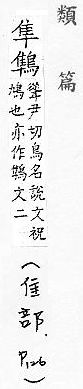 類篇
隼鶽聳尹切鳥名說文祝
鳩也亦作鶽文二
(隹部. P.126)